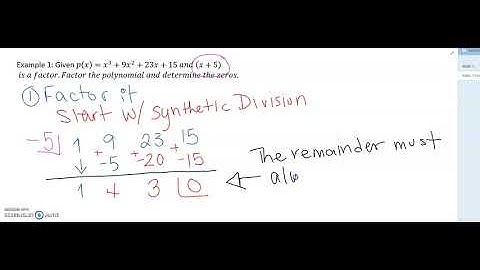 Example 1: Given p(x) = x³ + 9x² + 23x + 15 and (x + 5)
is a factor. Factor the polynomial and determine the zeros.
① Factor it
Start w/ Synthetic Division
-5| 1 + 9 + 23 + 15
↓ -5 -20 -15
1 4 3 |0
The remainder must
alw